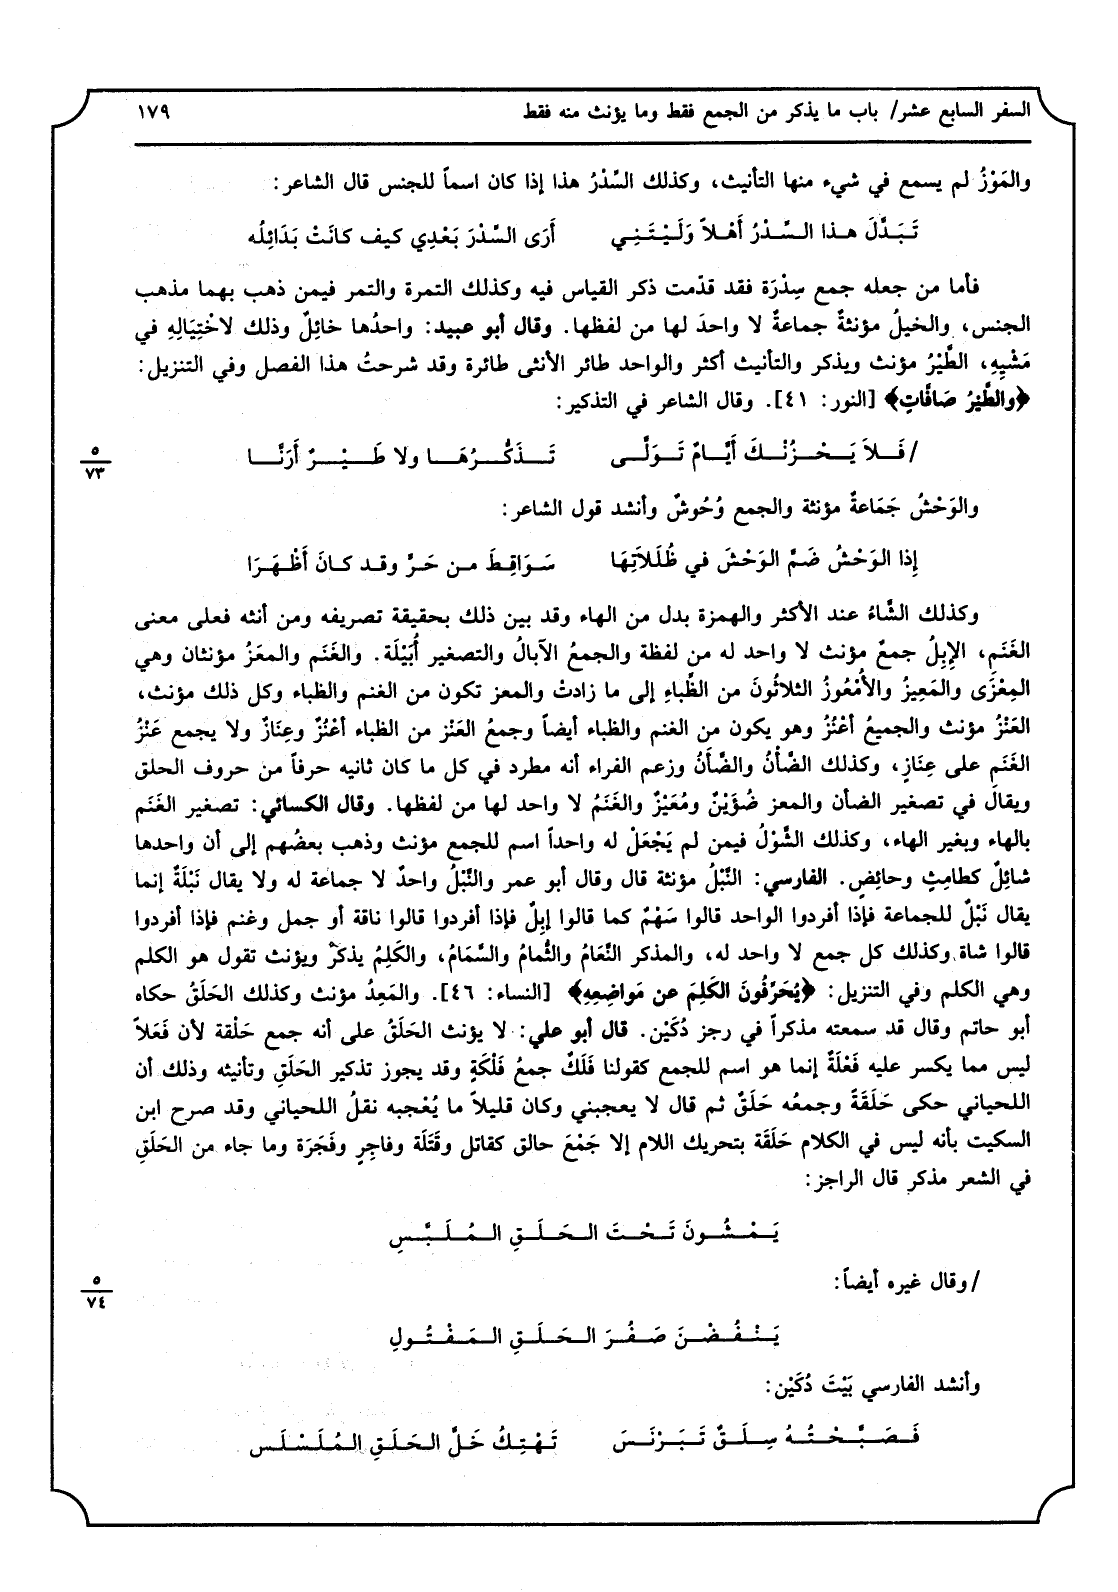 السفر السابع عشر/ باب ما يذكر من الجمع فقط وما يؤنث منه فقط ١٧٩
والمَوْزُ لم يسمع في شيء منها التأنيث، وكذلك السِّدْرُ هذا إذا كان اسماً للجنس قال الشاعر:
تَبَدَّلَ هذا السِّدْرُ أَهْلاً وَلَيْتَنِي أَرَى السِّدْرَ بَعْدِي كيف كانَتْ بَدَائِلُه
فأما من جعله جمع سِدْرَة فقد قدّمت ذكر القياس فيه وكذلك التمرة والتمر فيمن ذهب بهما مذهب
الجنس، والخيلُ مؤنثةٌ جماعةٌ لا واحدَ لها من لفظها. وقال أبو عبيد: واحدُها خائِلٌ وذلك لاخْتِيَالِهِ في
مَشْيِهِ، الطَّيْرُ مؤنث ويذكر والتأنيث أكثر والواحد طائر الأنثى طائرة وقد شرحتُ هذا الفصل وفي التنزيل:
﴿والطَّيْرُ صَافَّاتٍ﴾ [النور: ٤١]. وقال الشاعر في التذكير:
/ فَلاَ يَحْزُنْكَ أَيَّامٌ تَوَلَّى تَذَكُّرُهَا ولا طَيْرٌ أَرَنَّا
٥
٧٣
والوَحْشُ جَمَاعةٌ مؤنثة والجمع وُحُوشٌ وأنشد قول الشاعر:
إِذا الوَحْشُ ضَمَّ الوَحْشَ في ظُلَلاَتِهَا سَوَاقِطَ من حَرَّ وقد كانَ أَظْهَرَا
وكذلك الشَّاءُ عند الأكثر والهمزة بدل من الهاء وقد بين ذلك بحقيقة تصريفه ومن أنثه فعلى معنى
الغَنَم، الإِبِلُ جمعٌ مؤنث لا واحد له من لفظة والجمعُ الآبالُ والتصغير أُبَيْلَة. والغَنَم والمعَزُ مؤنثان وهي
المِعْزَى والمَعِيزُ والأُمْعُوزُ الثلاثُونَ من الظِّباءِ إلى ما زادتْ والمعز تكون من الغنم والظباء وكل ذلك مؤنث،
العَنْزُ مؤنث والجميعُ أعْنُزُ وهو يكون من الغنم والظباء أيضاً وجمعُ العَنْز من الظباء أعْنُزٌ وعِنَازٌ ولا يجمع عَنْزُ
الغَنَم على عِنازٍ، وكذلك الضَّأْنُ والضَّأَنُ وزعم الفراء أنه مطرد في كل ما كان ثانيه حرفاً من حروف الحلق
ويقال في تصغير الضأن والمعز ضُؤَيْنٌ ومُعَيْزٌ والغَنَمُ لا واحد لها من لفظها. وقال الكسائي: تصغير الغَنَم
بالهاء وبغير الهاء، وكذلك الشَّوْلُ فيمن لم يَجْعَلْ له واحداً اسم للجمع مؤنث وذهب بعضُهم إلى أن واحدها
شائِلٌ كطامِثٍ وحائِضٍ. الفارسي: النَّبْلُ مؤنثة قال وقال أبو عمر والنَّبْلُ واحدٌ لا جماعة له ولا يقال نَبْلَةٌ إنما
يقال نَبْلٌ للجماعة فإذا أفردوا الواحد قالوا سَهْمٌ كما قالوا إبِلٌ فإذا أفردوا قالوا ناقة أو جمل وغنم فإذا أفردوا
قالوا شاة وكذلك كل جمع لا واحد له، والمذكر النَّعَامُ والثُّمامُ والسَّمَامُ، والكَلِمُ يذكرُ ويؤنث تقول هو الكلم
وهي الكلم وفي التنزيل: ﴿يُحَرِّفُونَ الكَلِمَ عن مَواضِعِهِ﴾ [النساء: ٤٦]. والمَعِدُ مؤنث وكذلك الحَلَقُ حكاه
أبو حاتم وقال قد سمعته مذكراً في رجز دُكَيْن. قال أبو علي: لا يؤنث الحَلَقُ على أنه جمع حَلْقة لأن فَعَلاً
ليس مما يكسر عليه فَعْلَةٌ إنما هو اسم للجمع كقولنا فَلَكٌ جمعُ فَلْكَةٍ وقد يجوز تذكير الحَلَقِ وتأنيثه وذلك أن
اللحياني حكى حَلَقَةً وجمعُه حَلَقٌ ثم قال لا يعجبني وكان قليلاً ما يُعْجبه نقلُ اللحياني وقد صرح ابن
السكيت بأنه ليس في الكلام حَلَقَة بتحريك اللام إلا جَمْعَ حالق كقاتل وقَتَلَة وفاجِرٍ وفَجَرَة وما جاء من الحَلَقِ
في الشعر مذكر قال الراجز:
يَمْشُونَ تَحْتَ الحَلَقِ المُلَبَّسِ
/ وقال غيره أيضاً:
٥
٧٤
يَنْفُضْنَ صَفُرَ الحَلَقِ المَفْتُولِ
وأنشد الفارسي بَيْتَ دُكَيْن:
فَصَبَّحْتُهُ سِلَقٌ تَبَرْنَسَ تَهْتِكُ خَلَّ الحَلَقِ المُلَسْلَسِ